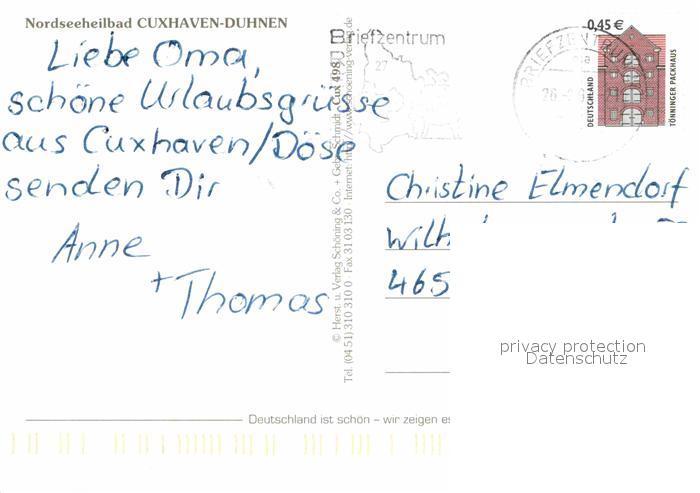 Nordseeheilbad CUXHAVEN-DUHNEN
Liebe Oma,
schöne Urlaubsgrüsse
aus Cuxhaven/Döse
senden Dir
Anne
+ Thomas
© Herst. u. Verlag Schöning & Co. + Gebr. Schmidt
Cux 498
Tel. (04 51) 310 310 0 · Fax 31 03 130
Briefzentrum
27
BRIEFZENTRUM
0,45 €
DEUTSCHLAND
TÖNNINGER PACKHAUS
Christine Elmendorf
465
privacy protection
Datenschutz
Deutschland ist schön – wir zeigen es